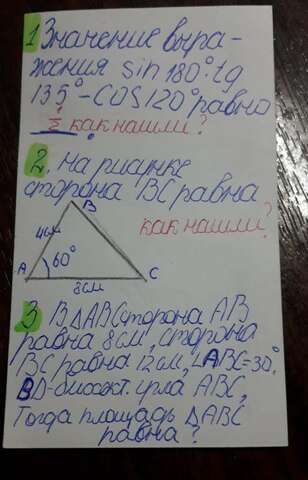 1 Значение выра-
жения sin 180°·tg
135° - cos 120° равно
1/2 как нашли?
2. на рисунке
сторона BC равна
как нашли?
B
4см
60°
A
C
8см
3 В △ABC сторона AB
равна 8см, сторона
BC равна 12см, ∠ABC=30°,
BD-биссект. угла ABC,
Тогда площадь △ABC
равна?